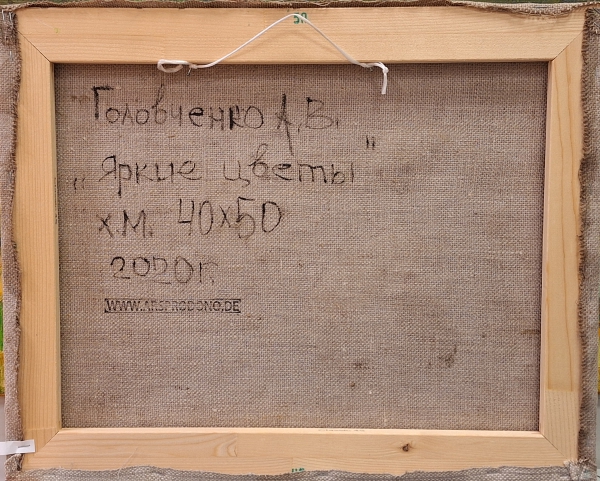 Головченко А.В.
„Яркие цветы"
х.м. 40х50
2020г.
WWW.ARSPRODONO.DE